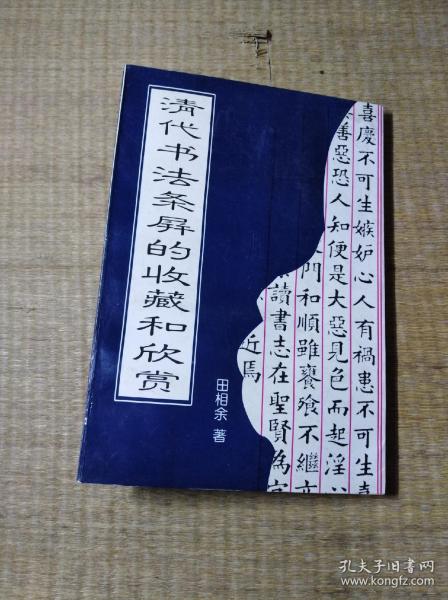 清代书法条屏的收藏和欣赏
田相余 著
喜慶不可生嫉妒心人有禍患不可生喜
善惡恐人知便是大惡見色而起淫
門和順雖饔飧不繼亦
讀書志在聖賢為官
近焉
孔夫子旧书网
www.kongfz.com